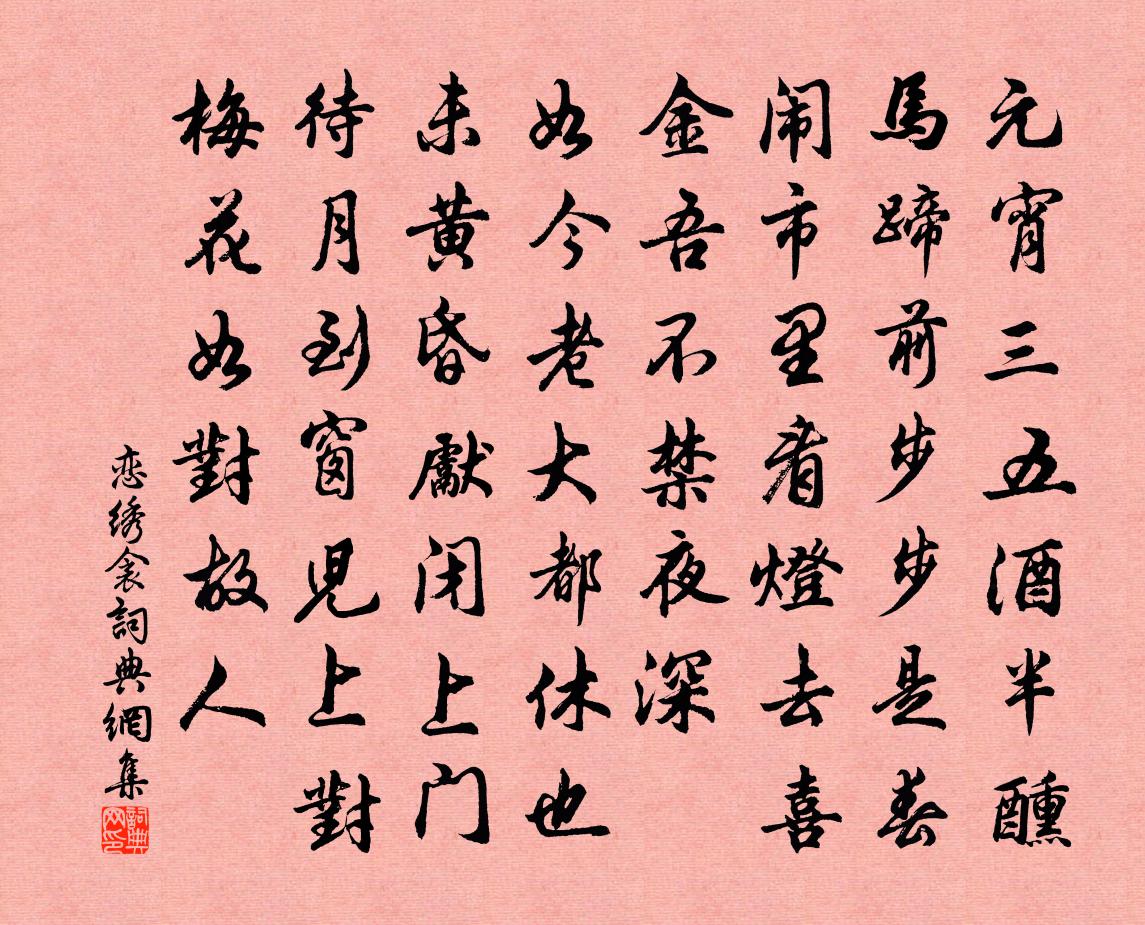 元宵三五酒半醺
馬蹄前步步是春
闹市里看燈去喜
金吾不禁夜深
如今老大都休也
未黄昏獻闭上门
待月到窗児上對
梅花如對故人
恋绣衾詞典網集
詞典网印